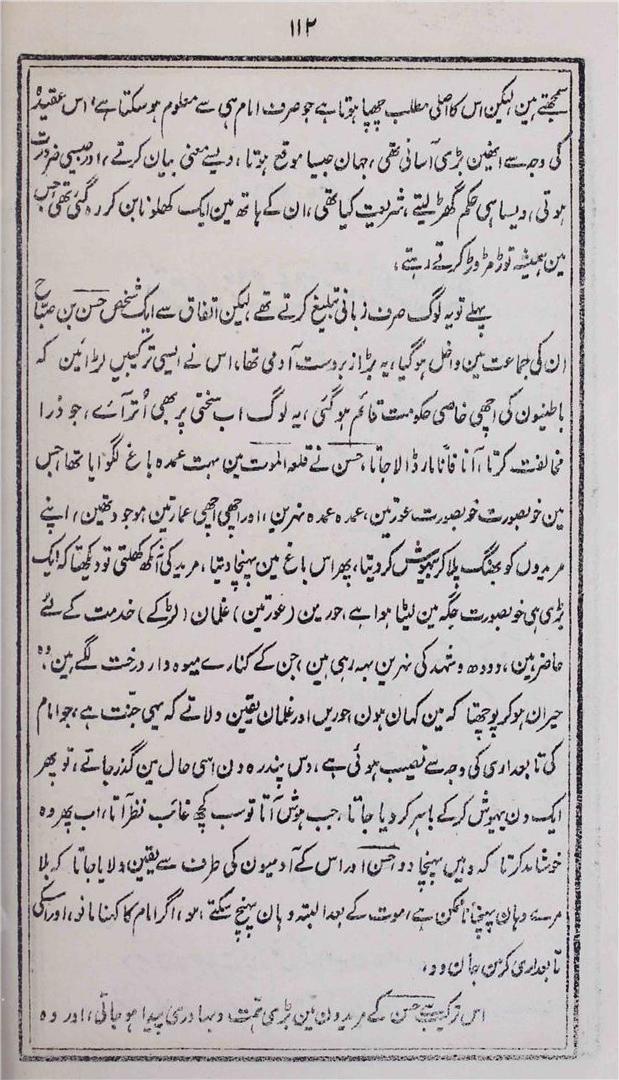 ۱۱۲
سمجھتے ہین لیکن اس کا اصلی مطلب چھپا ہوتا ہے جو صرف امام ہی سے معلوم ہو سکتا ہے، اس عقیدہ
کی وجہ سے انھین بڑی آسانی تھی، جہان جیسا موقع ہوتا، ویسے معنی بیان کرتے، اور جیسی ضرورت
ہوتی، ویسا ہی حکم گھڑ لیتے، شریعت کیا تھی، ان کے ہاتھ مین ایک کھلونا بن کر رہ گئی تھی جس
مین ہمیشہ توڑ مڑوڑ کرتے رہتے،
پہلے تو یہ لوگ صرف زبانی تبلیغ کرتے تھے لیکن اتفاق سے ایک شخص حسن بن صباح
ان کی جماعت مین داخل ہو گیا، یہ بڑا زبردست آدمی تھا، اس نے ایسی ترکیبیں لڑائین کہ
باطنیون کی اچھی خاصی حکومت قائم ہو گئی، یہ لوگ اب سختی پر بھی اُتر آئے، جو ذرا
مخالفت کرتا، آناً فاناً مار ڈالا جاتا، حسن نے قلعہ الموت مین بہت عمدہ باغ لگوایا تھا جس
مین خوبصورت خوبصورت عورتین، عمدہ عمدہ نہرین، اور اچھی اچھی عمارتین موجود تھین، اپنے
مریدوں کو بھنگ پلا کر بیہوش کر دیتا، پھر اس باغ مین پہنچا دیتا، مرید کی آنکھ کھلتی تو دیکھتا کہ ایک
بڑی ہی خوبصورت جگہ مین لیٹا ہوا ہے، حورین (عورتین) غلمان (لڑکے) خدمت کے لئے
حاضر ہین، دودھ و شہد کی نہرین بہہ رہی ہین، جن کے کنارے میوہ دار درخت لگے ہین، وہ
حیران ہو کر پوچھتا کہ مین کہان ہون، حوریں اور غلمان یقین دلاتے کہ یہی جنّت ہے، جو امام
کی تابعداری کی وجہ سے نصیب ہوئی ہے، دس پندرہ دن اسی حال مین گذر جاتے، تو پھر
ایک دن بیہوش کر کے باہر کر دیا جاتا، جب ہوش آتا تو سب کچھ غائب نظر آتا، اب پھر وہ
خوشامد کرتا کہ وہیں پہنچا دو، حسن اور اس کے آدمیون کی طرف سے یقین دلایا جاتا کہ بلا
مرے وہان پہنچنا ناممکن ہے، موت کے بعد البتہ وہان پہنچ سکتے ہو، اگر امام کا کہنا مانو، اور اسکی
تابعداری کرنین جان دو،
اس ترکیب سے حسن کے مریدون مین بڑی ہمت و بہادری پیدا ہو جاتی، اور وہ